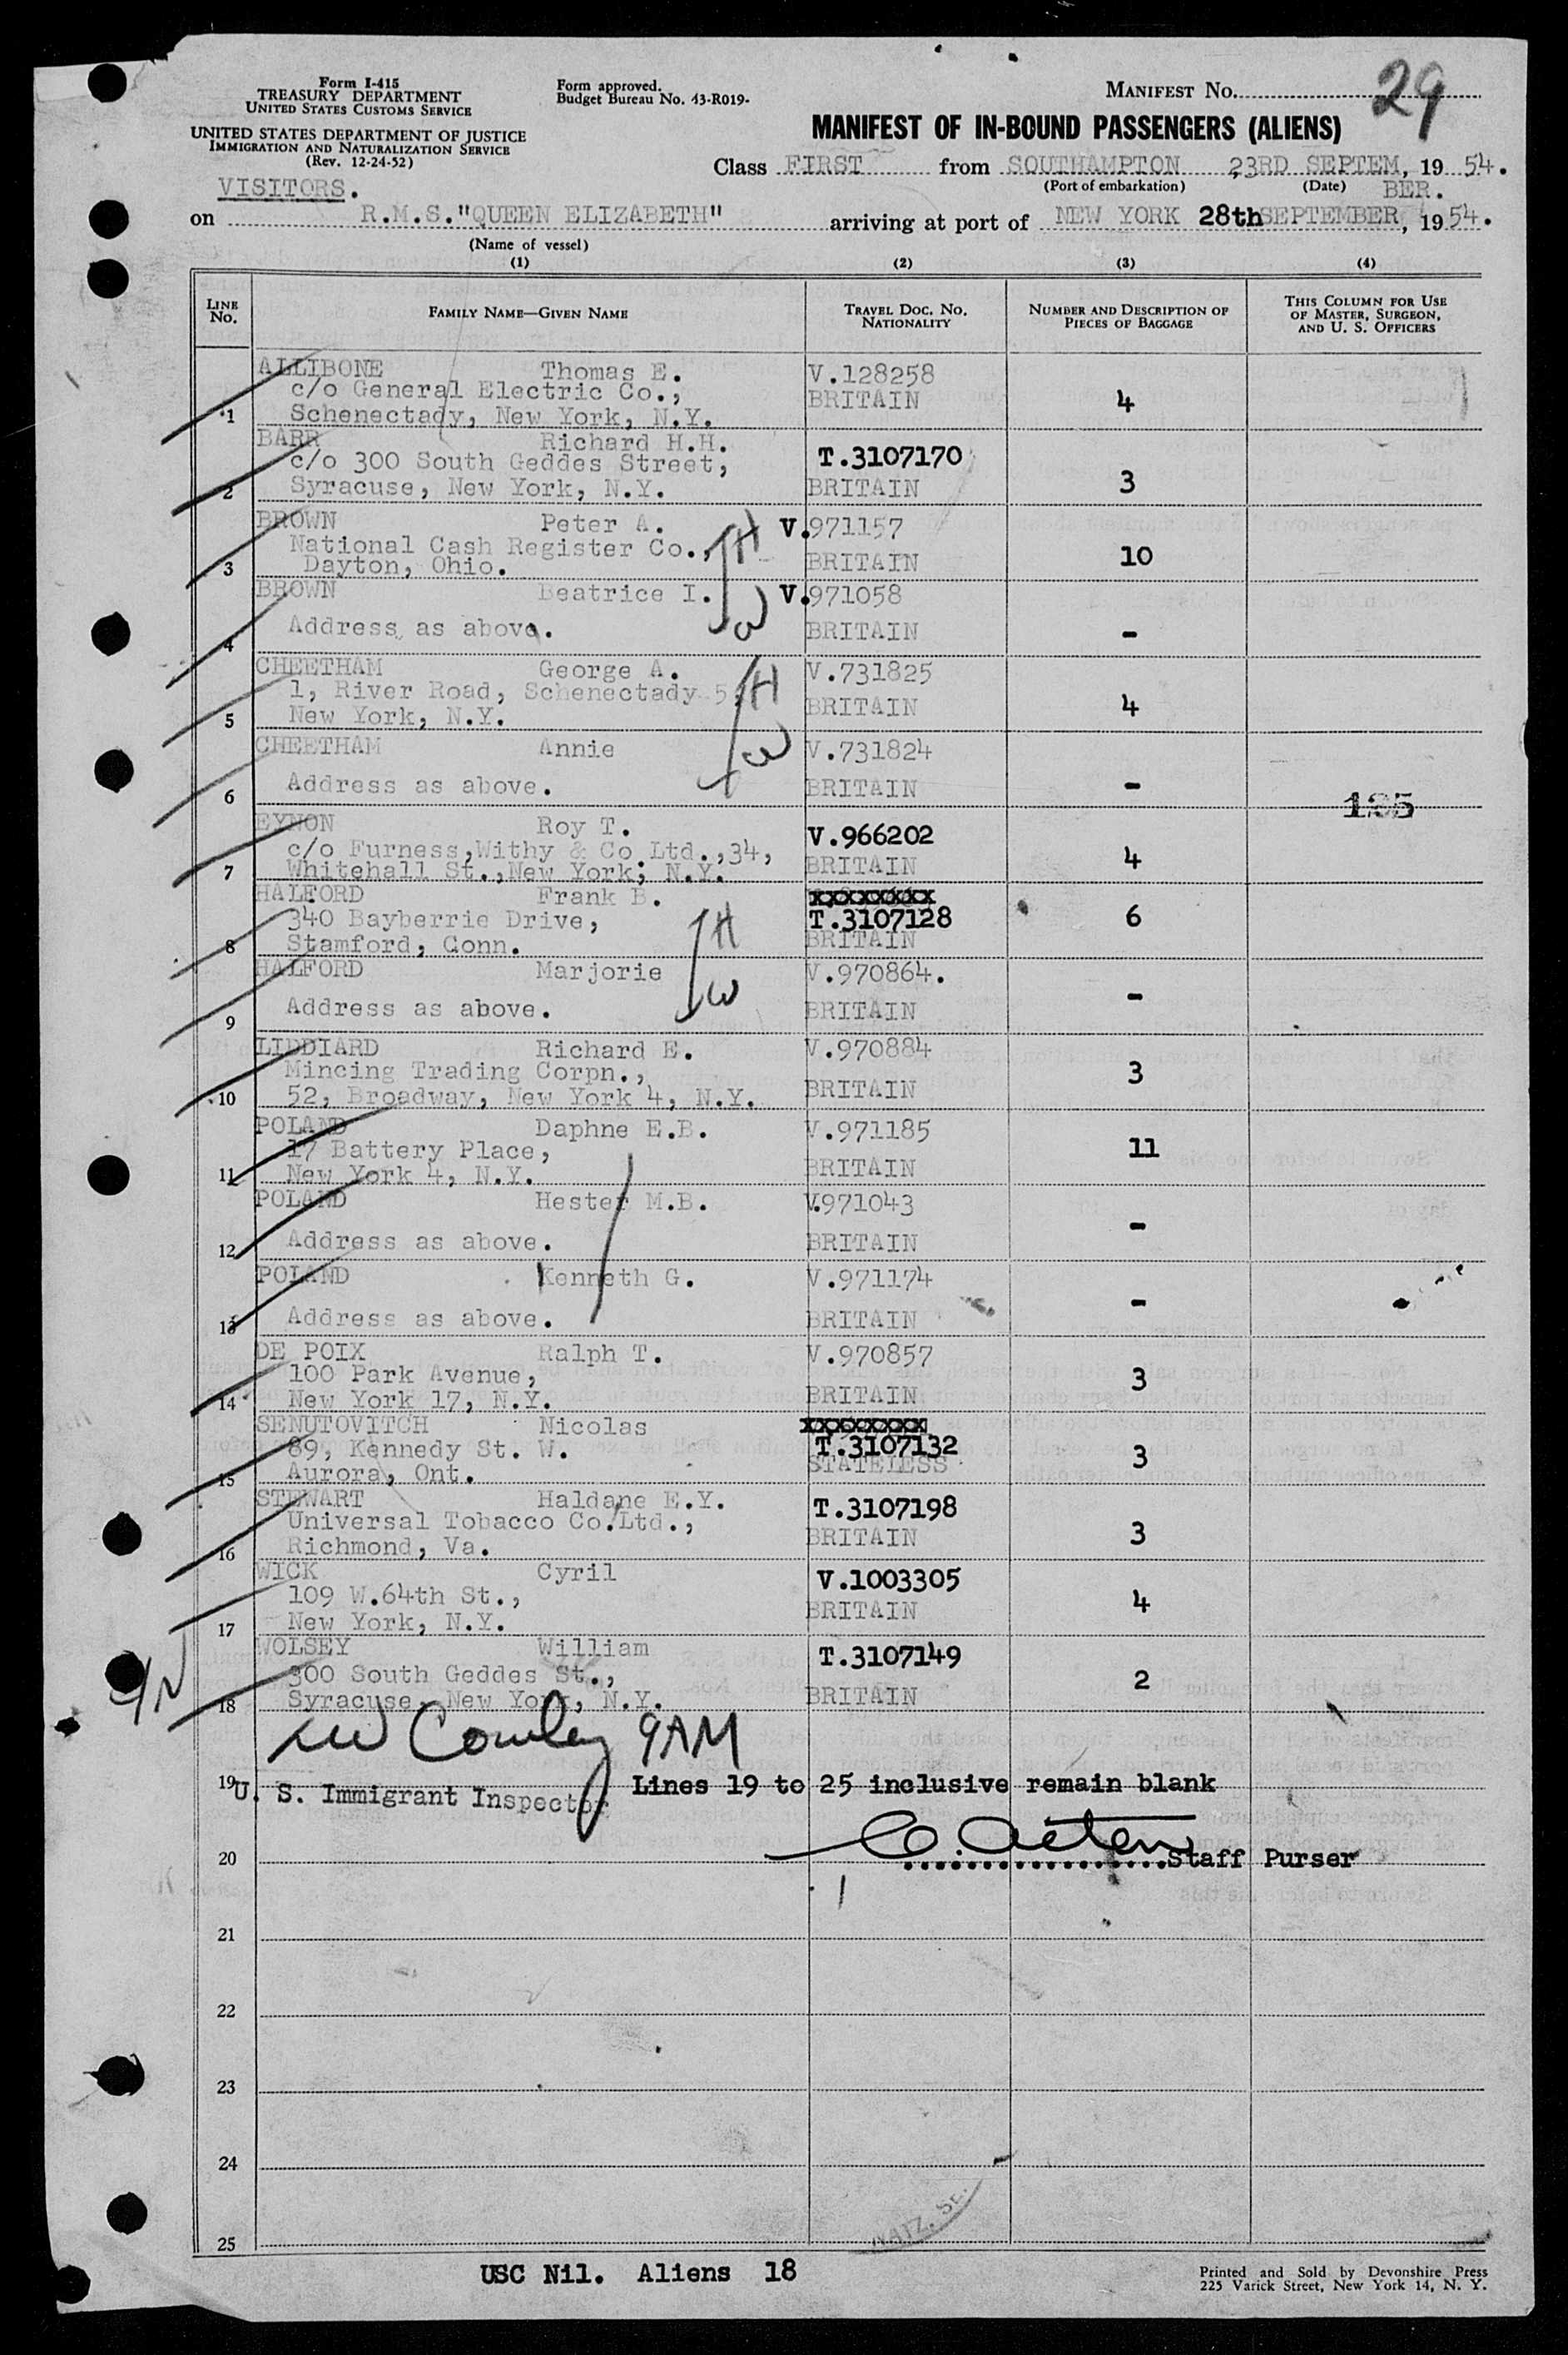 Form I-415
TREASURY DEPARTMENT
UNITED STATES CUSTOMS SERVICE
UNITED STATES DEPARTMENT OF JUSTICE
IMMIGRATION AND NATURALIZATION SERVICE
(Rev. 12-24-52)
Form approved.
Budget Bureau No. 43-R019-
MANIFEST No. 29
MANIFEST OF IN-BOUND PASSENGERS (ALIENS)
Class FIRST from SOUTHAMPTON, 23RD SEPTEM, 19 54.
(Port of embarkation) (Date) BER.
VISITORS.
on R.M.S."QUEEN ELIZABETH" arriving at port of NEW YORK 28th SEPTEMBER, 19 54.
(Name of vessel)
(1) (2) (3) (4)
LINE No. FAMILY NAME—GIVEN NAME TRAVEL DOC. NO. NATIONALITY NUMBER AND DESCRIPTION OF PIECES OF BAGGAGE THIS COLUMN FOR USE OF MASTER, SURGEON, AND U. S. OFFICERS
ALLIBONE Thomas E. V.128258
c/o General Electric Co., BRITAIN 4
1 Schenectady, New York, N.Y.
BARR Richard H.H. T.3107170
c/o 300 South Geddes Street,
2 Syracuse, New York, N.Y. BRITAIN 3
BROWN Peter A. V.971157
National Cash Register Co., H
3 Dayton, Ohio. BRITAIN 10
BROWN Beatrice I. V.971058
4 Address as above. W BRITAIN -
CHEETHAM George A. V.731825
1, River Road, Schenectady 5, H
5 New York, N.Y. BRITAIN 4
CHEETHAM Annie W V.731824
6 Address as above. BRITAIN -
135
EYNON Roy T. V.966202
c/o Furness,Withy & Co.Ltd.,34,
7 Whitehall St.,New York, N.Y. BRITAIN 4
HALFORD Frank B. xxxxxxxx
340 Bayberrie Drive, H T.3107128 6
8 Stamford, Conn. BRITAIN
HALFORD Marjorie V.970864.
9 Address as above. W BRITAIN -
LIDDIARD Richard E. V.970884
Mincing Trading Corpn., 3
10 52, Broadway, New York 4, N.Y. BRITAIN
POLAND Daphne E.B. V.971185
17 Battery Place, 11
11 New York 4, N.Y. BRITAIN
POLAND Hester M.B. V.971043
12 Address as above. BRITAIN -
POLAND Kenneth G. V.971174
13 Address as above. BRITAIN -
DE POIX Ralph T. V.970857
100 Park Avenue, 3
14 New York 17, N.Y. BRITAIN
SENUTOVITCH Nicolas xxxxxxxx
89, Kennedy St. W. T.3107132 3
15 Aurora, Ont. STATELESS
STEWART Haldane E.Y. T.3107198
Universal Tobacco Co.Ltd., 3
16 Richmond, Va. BRITAIN
WICK Cyril V.1003305
109 W.64th St., BRITAIN 4
17 New York, N.Y.
WOLSEY William T.3107149
300 South Geddes St., 2
18 Syracuse, New York, N.Y. BRITAIN
Cowley 9AM
19 U. S. Immigrant Inspector Lines 19 to 25 inclusive remain blank
20 Staff Purser
21
22
23
24
25
USC Nil. Aliens 18
Printed and Sold by Devonshire Press
225 Varick Street, New York 14, N. Y.